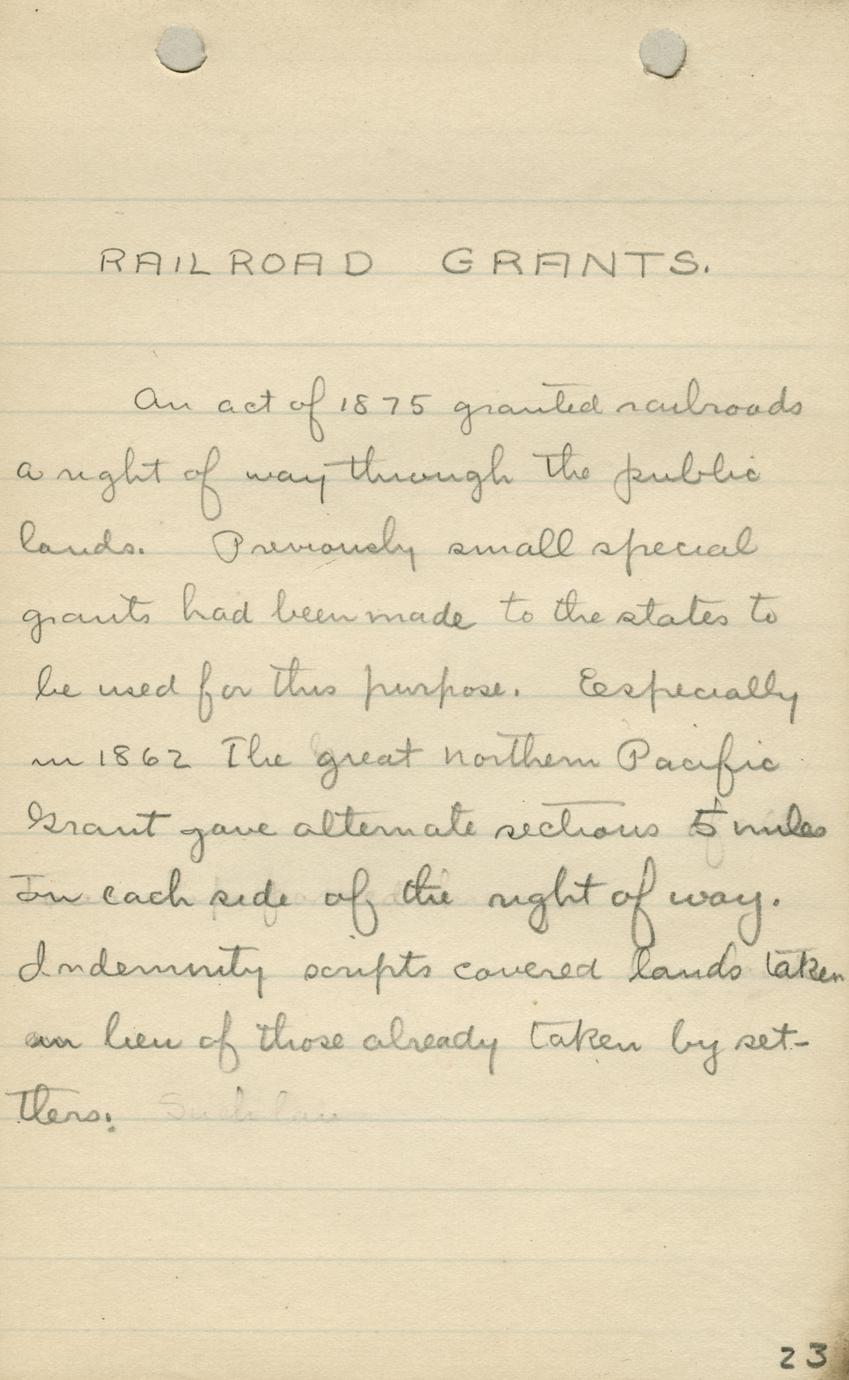 RAILROAD GRANTS.
An act of 1875 granted railroads
a right of way through the public
lands. Previously small special
grants had been made to the states to
be used for this purpose. Especially
in 1862 The great northern Pacific
Grant gave alternate sections 5 miles
on each side of the right of way.
Indemnity scripts covered lands taken
in lieu of those already taken by set-
tlers.
23